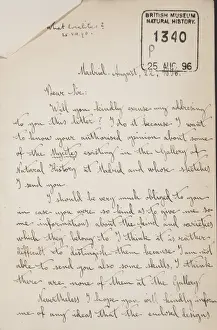 BRITISH MUSEUM
NATURAL HISTORY.
1340
P
25 AUG. 96
Madrid August, 22, 1896.
Dear Sir:
Will you kindly excuse my addressing
to you this letter? I do it because I want
to know your authorised opinion about some
of the existing in the Gallery of
Natural History at Madrid and whose sketches
I send you.
I should be very much obliged to you
in case you were so kind as to give me so-
me informations about the kind and varieties
which they belong to. I think it is rather
difficult to distinguish them because I am not
able to send you also some skulls, I think
there are none of them at the Gallery
Nevertheless I hope you will kindly inform
me of any ideas that the enclosed designs